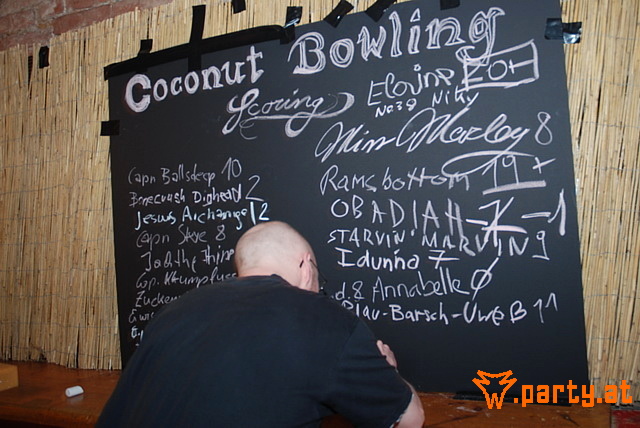 Coconut Bowling
Scoring
Elaine 20+
No 38 Niky
Miss Marley 8
Capn Ballsdeep 10
Bonecrush Dighead 2
Jesus Archangel 2
Capn Steve 8
Ramsbottom 19+
OBADIAH -1
STARVIN' MARVIN 9
Idunno 7
d.8 Annabelle 0
Blau-Barsch-Uwe B 11
.party.at